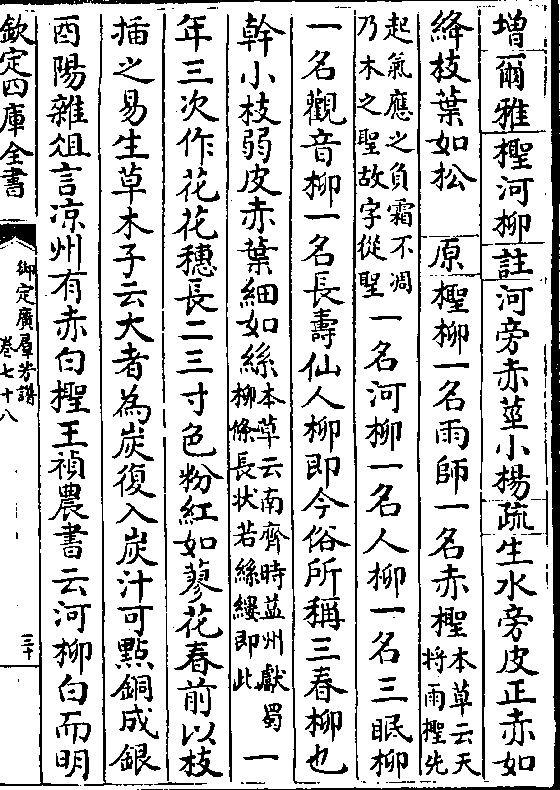 增爾雅檉河柳註河旁赤莖小楊疏生水旁皮正赤如
絳枝葉如松　原檉柳一名雨師一名赤檉本草云天將雨檉先
起氣應之負霜不凋乃木之聖故字從聖一名河柳一名人柳一名三眠柳
一名觀音柳一名長壽仙人柳即今俗所稱三春柳也
幹小枝弱皮赤葉細如絲本草云南齊時益州獻蜀柳條長狀若絲縷即此一
年三次作花花穗長二三寸色粉紅如蓼花春前以枝
插之易生草木子云大者為炭復入炭汁可點銅成銀
酉陽雜俎言凉州有赤白檉王禎農書云河柳白而明
欽定四庫全書
御定廣群芳譜
卷七十八
三十